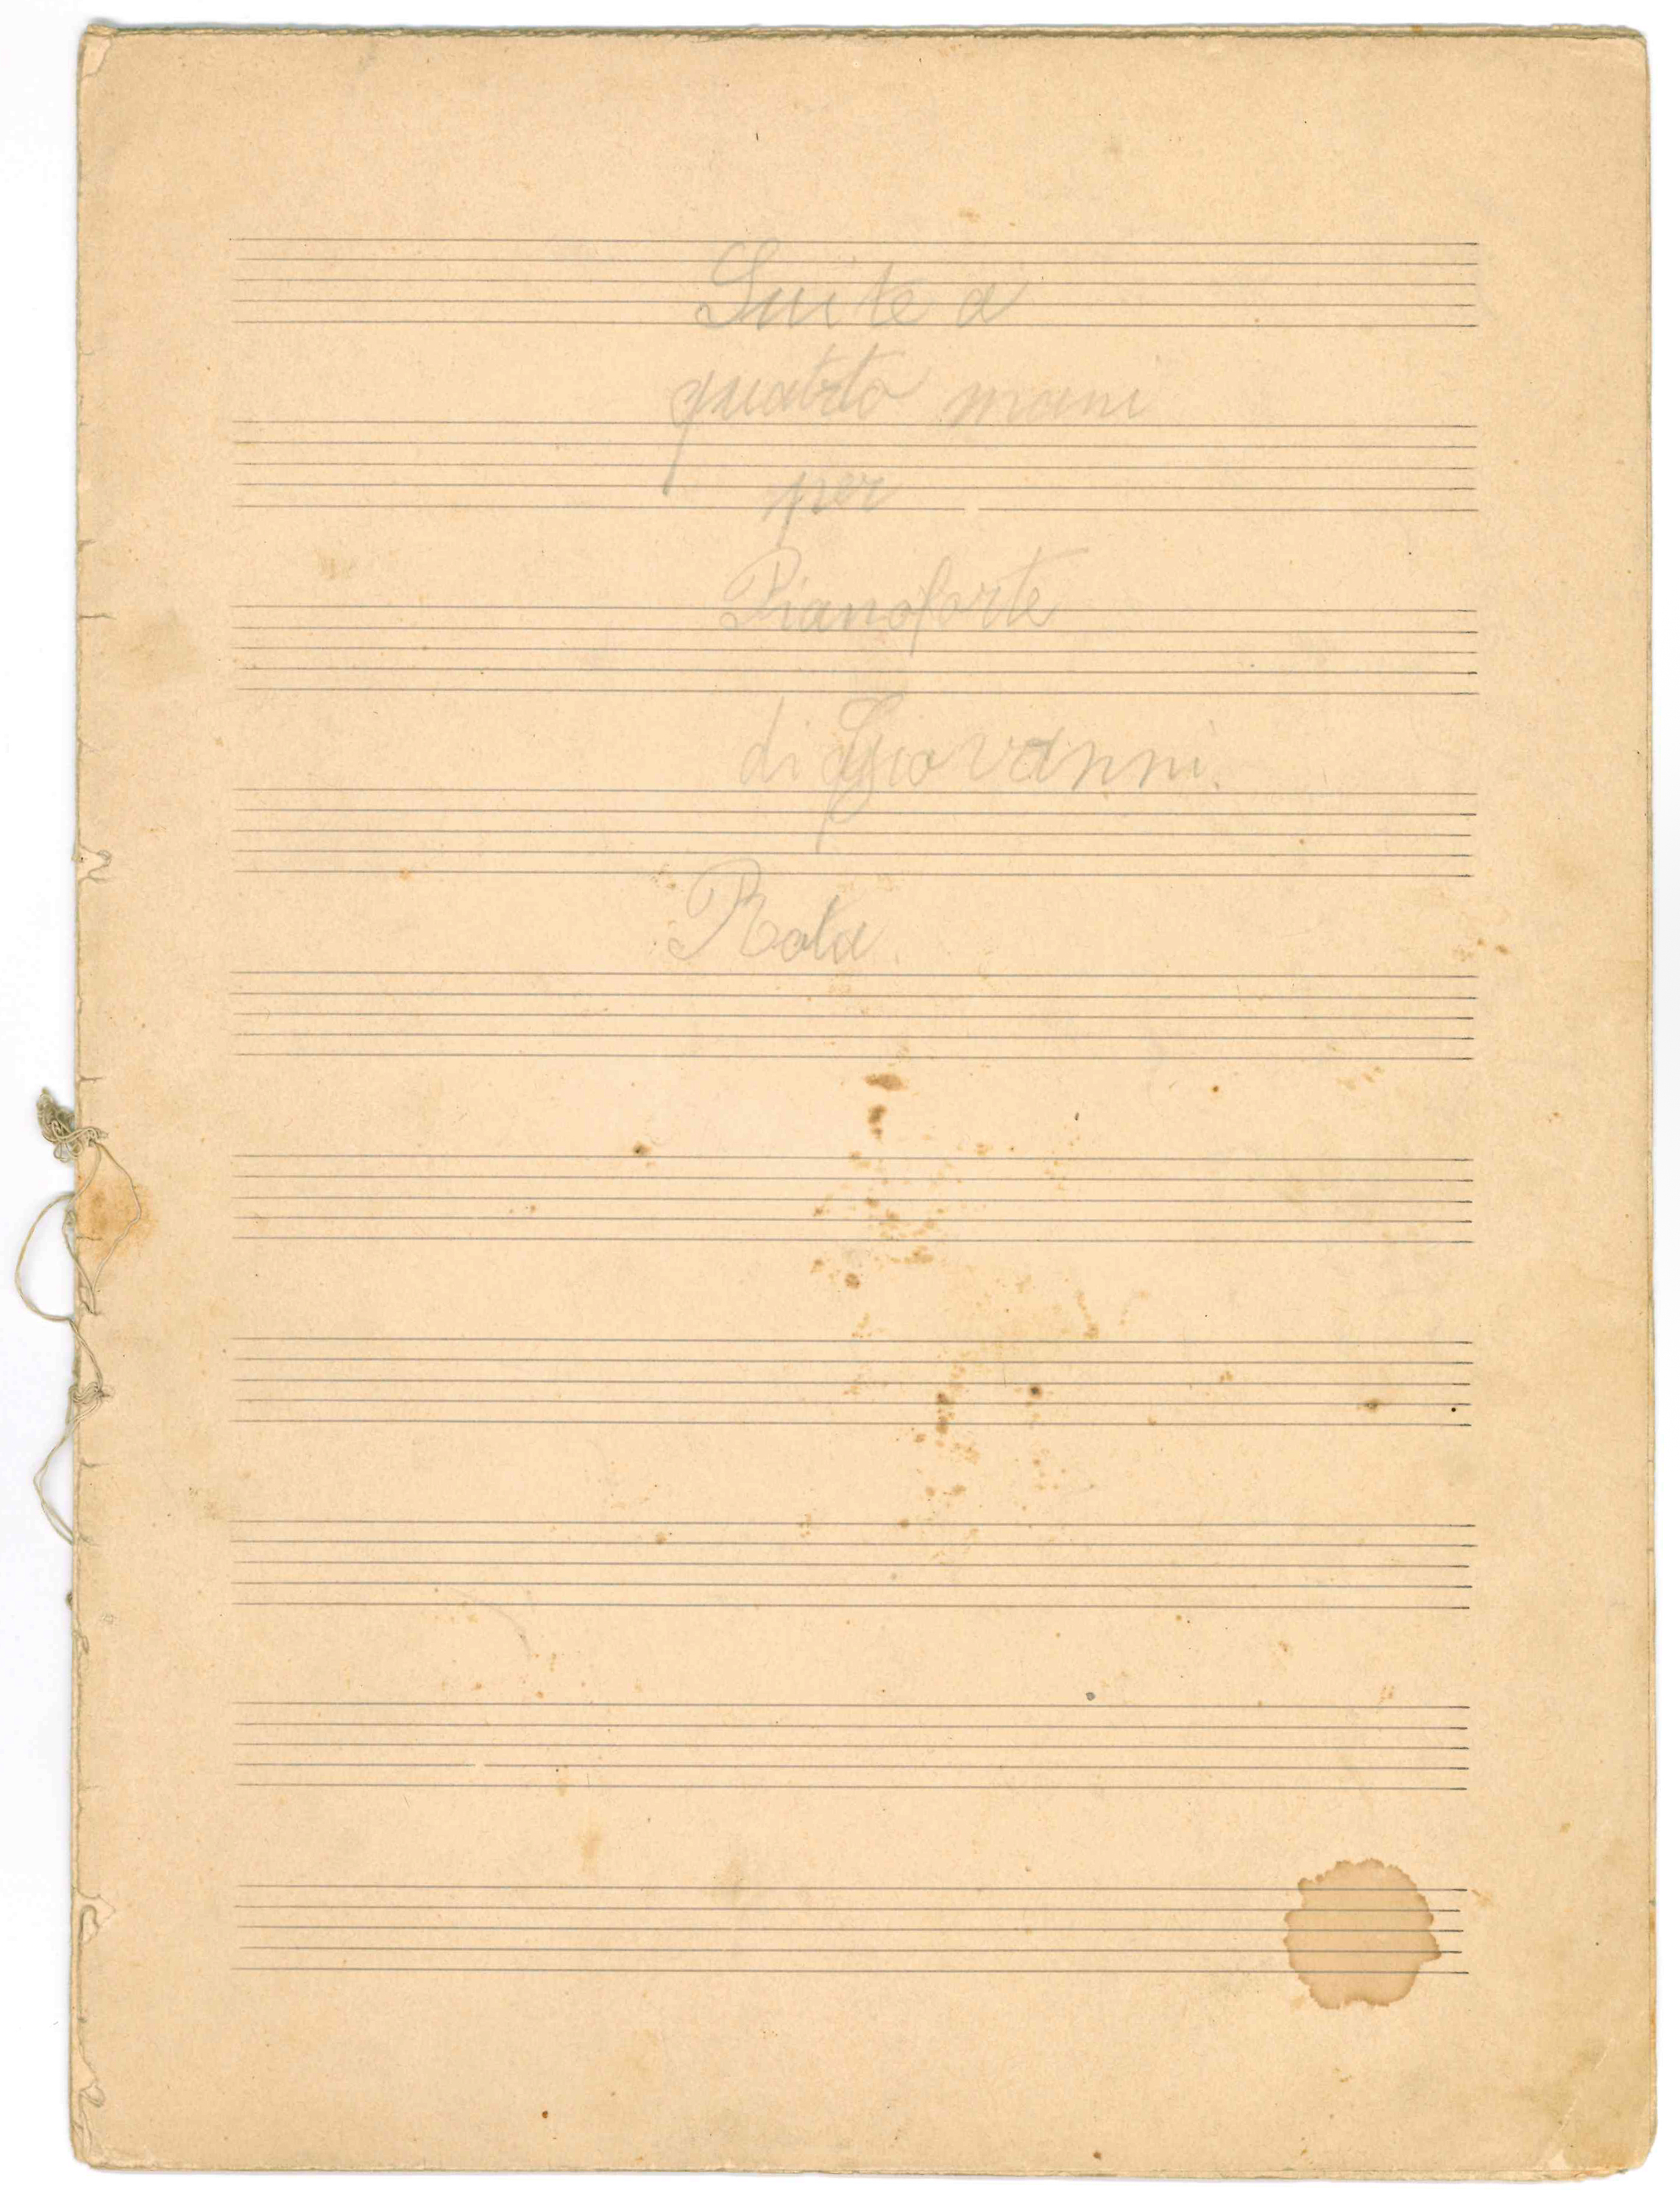 Suite a
quatrto mani
per
Pianoforte
di Giovanni.
Rota.